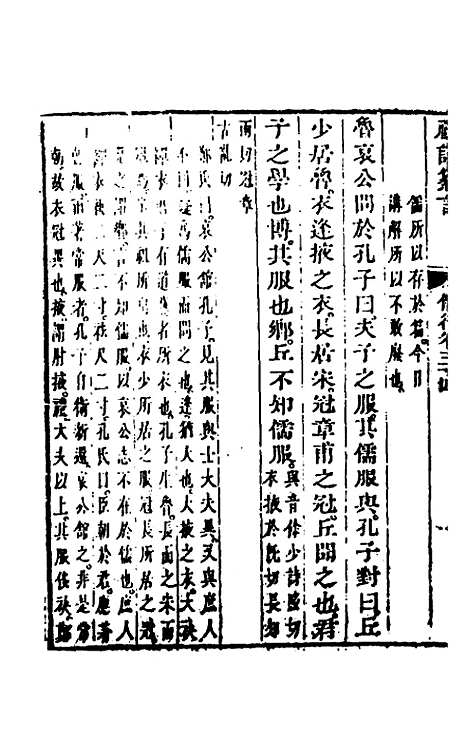 禮記纂言 儒行卷三
儒所以存於篇今日
講解所以不敢廢也
魯哀公問於孔子曰夫子之服其儒服與孔子對曰丘
少居魯衣逢掖之衣長居宋冠章甫之冠丘聞之也君
子之學也博其服也鄉丘不知儒服與音餘少詩照切
衣掖於旣切長知
兩切冠章
古亂切
鄭氏曰哀公館孔子見其服與士大夫異又與庶人
不同疑爲儒服而問之也逢猶大也大掖之衣大袂
禪衣也君子有道藝所衣也孔子生魯長而之宋而
冠焉宋其祖所出也衣少所居之服冠長所居之
冠之謂鄉言不知儒服以哀公志不在於儒也庶人
禪衣袂二尺二寸袪尺二寸孔氏曰臣朝於君應著
朝服而著常服者孔子自衛新還哀公館之非是常
朝故衣冠異也掖謂肘掖禮大夫以上其服侈袂鄭